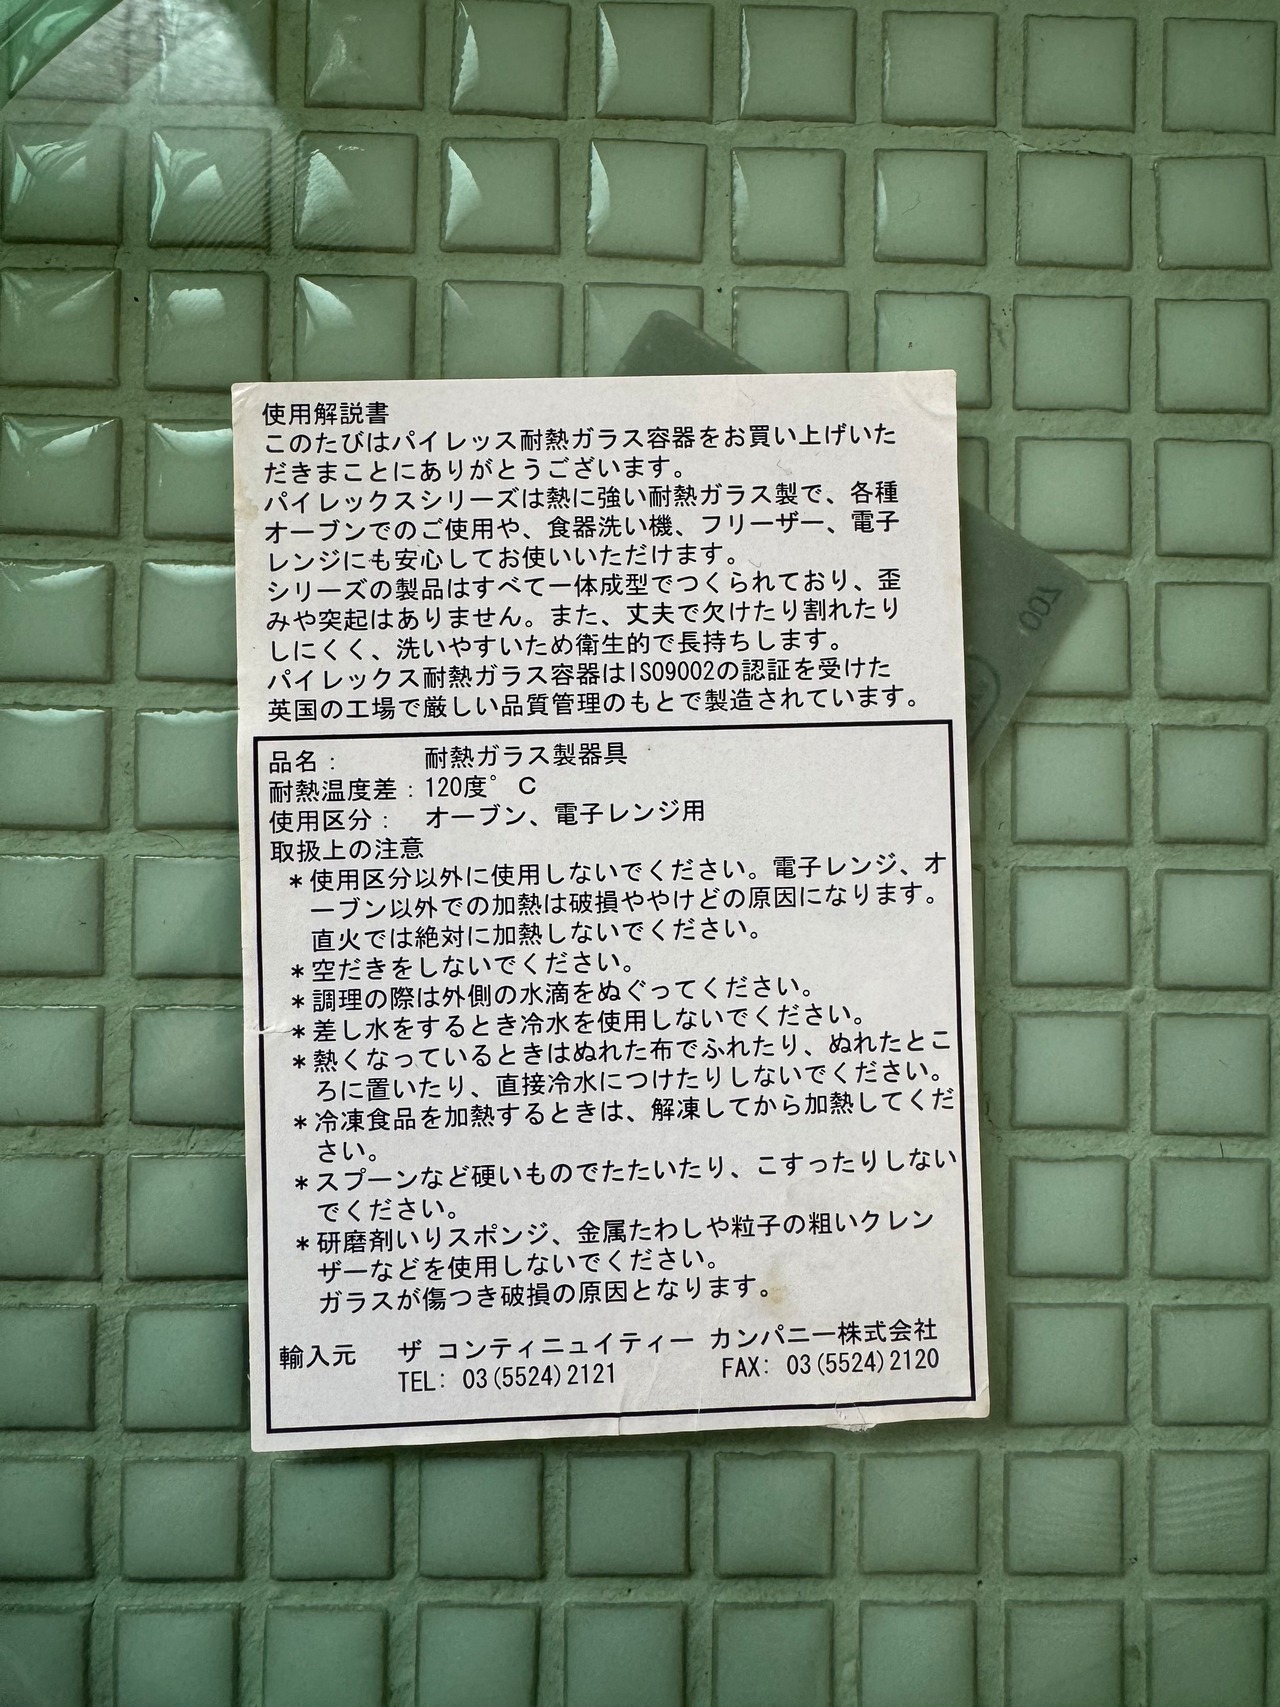 使用解説書
このたびはパイレッス耐熱ガラス容器をお買い上げいた
だきまことにありがとうございます。
パイレックスシリーズは熱に強い耐熱ガラス製で、各種
オーブンでのご使用や、食器洗い機、フリーザー、電子
レンジにも安心してお使いいただけます。
シリーズの製品はすべて一体成型でつくられており、歪
みや突起はありません。また、丈夫で欠けたり割れたり
しにくく、洗いやすいため衛生的で長持ちします。
パイレックス耐熱ガラス容器はISO9002の認証を受けた
英国の工場で厳しい品質管理のもとで製造されています。
品名： 耐熱ガラス製器具
耐熱温度差：120度°C
使用区分： オーブン、電子レンジ用
取扱上の注意
＊使用区分以外に使用しないでください。電子レンジ、オ
ーブン以外での加熱は破損ややけどの原因になります。
直火では絶対に加熱しないでください。
＊空だきをしないでください。
＊調理の際は外側の水滴をぬぐってください。
＊差し水をするとき冷水を使用しないでください。
＊熱くなっているときはぬれた布でふれたり、ぬれたとこ
ろに置いたり、直接冷水につけたりしないでください。
＊冷凍食品を加熱するときは、解凍してから加熱してくだ
さい。
＊スプーンなど硬いものでたたいたり、こすったりしない
でください。
＊研磨剤いりスポンジ、金属たわしや粒子の粗いクレン
ザーなどを使用しないでください。
ガラスが傷つき破損の原因となります。
輸入元 ザ コンティニュイティー カンパニー株式会社
TEL: 03(5524)2121 FAX: 03(5524)2120